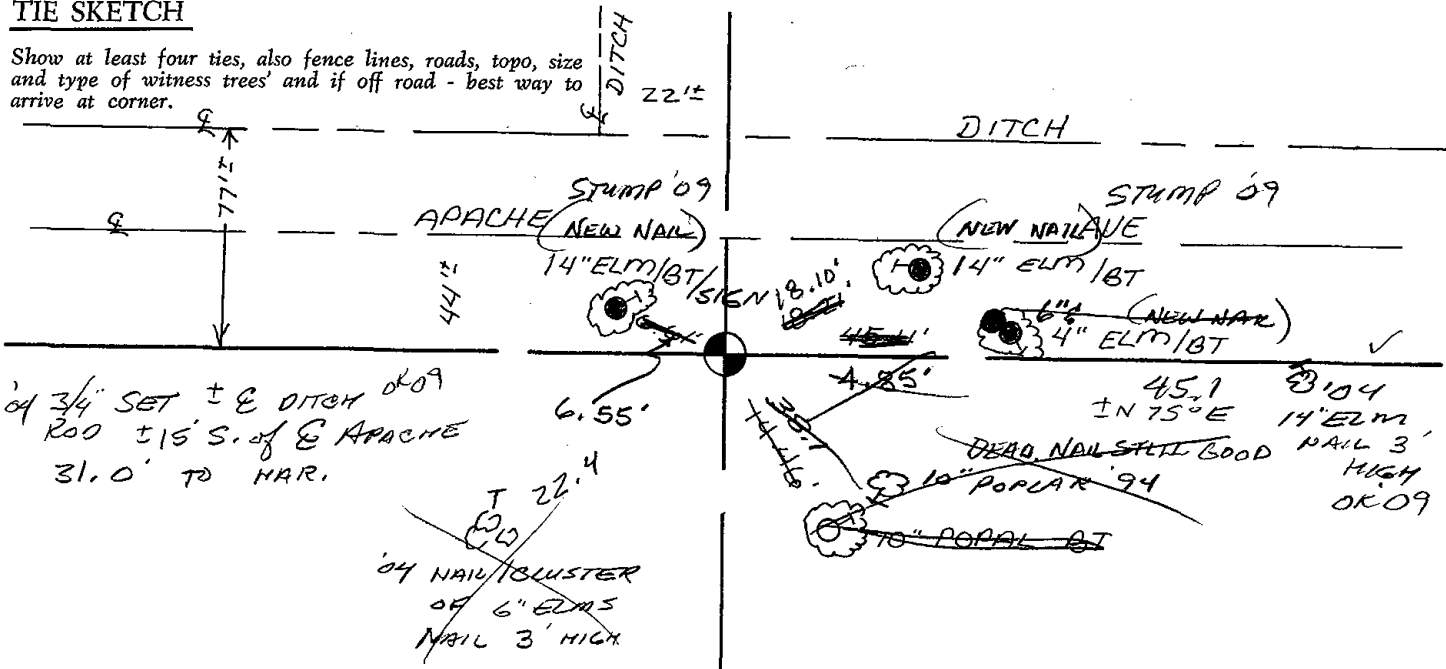 TIE SKETCH
Show at least four ties, also fence lines, roads, topo, size
and type of witness trees' and if off road - best way to
arrive at corner.
DITCH
℄
22'±
℄
DITCH
77'±
STUMP '09
STUMP '09
℄
APACHE
(NEW NAIL)
(NEW NAIL)
AVE
44'±
14" ELM/BT/SIGN
18.10'
14" ELM/BT
6"& (NEW NAIL)
4" ELM/BT
4.85'
6.55'
'04 3/4" SET ± ℄ DITCH OK 09
ROD ±15' S. of ℄ APACHE
31.0' TO HAR.
45.1
±N 75°E
'04
14" ELM
NAIL 3'
HIGH
OK 09
14.46'
DEAD, NAIL STILL GOOD
10" POPLAR '94
10" POPAL BT
T 22.4
'04 NAIL/CLUSTER
OF 6" ELMS
NAIL 3' HIGH